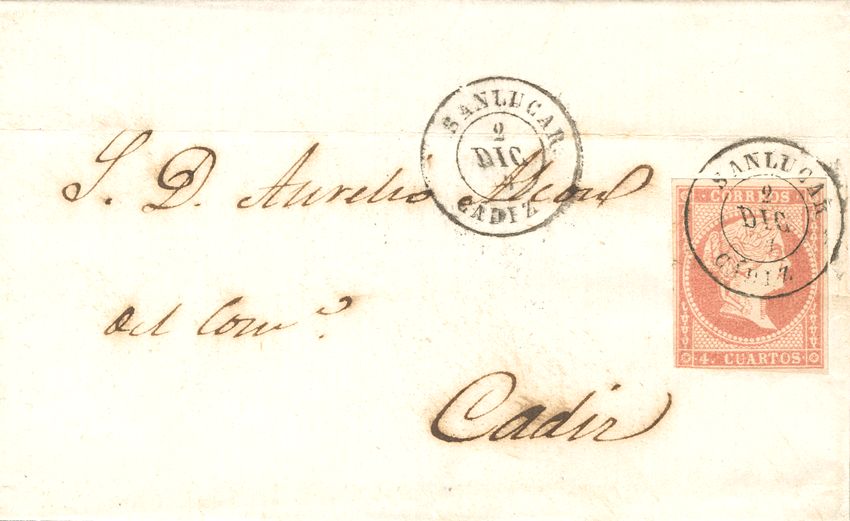 SANLUCAR
2
DIC
CADIZ
S. D. Aurelio Alcon
del Com.º
Cadiz
SANLUCAR
2
DIC
CADIZ
CORREOS
4. CUARTOS